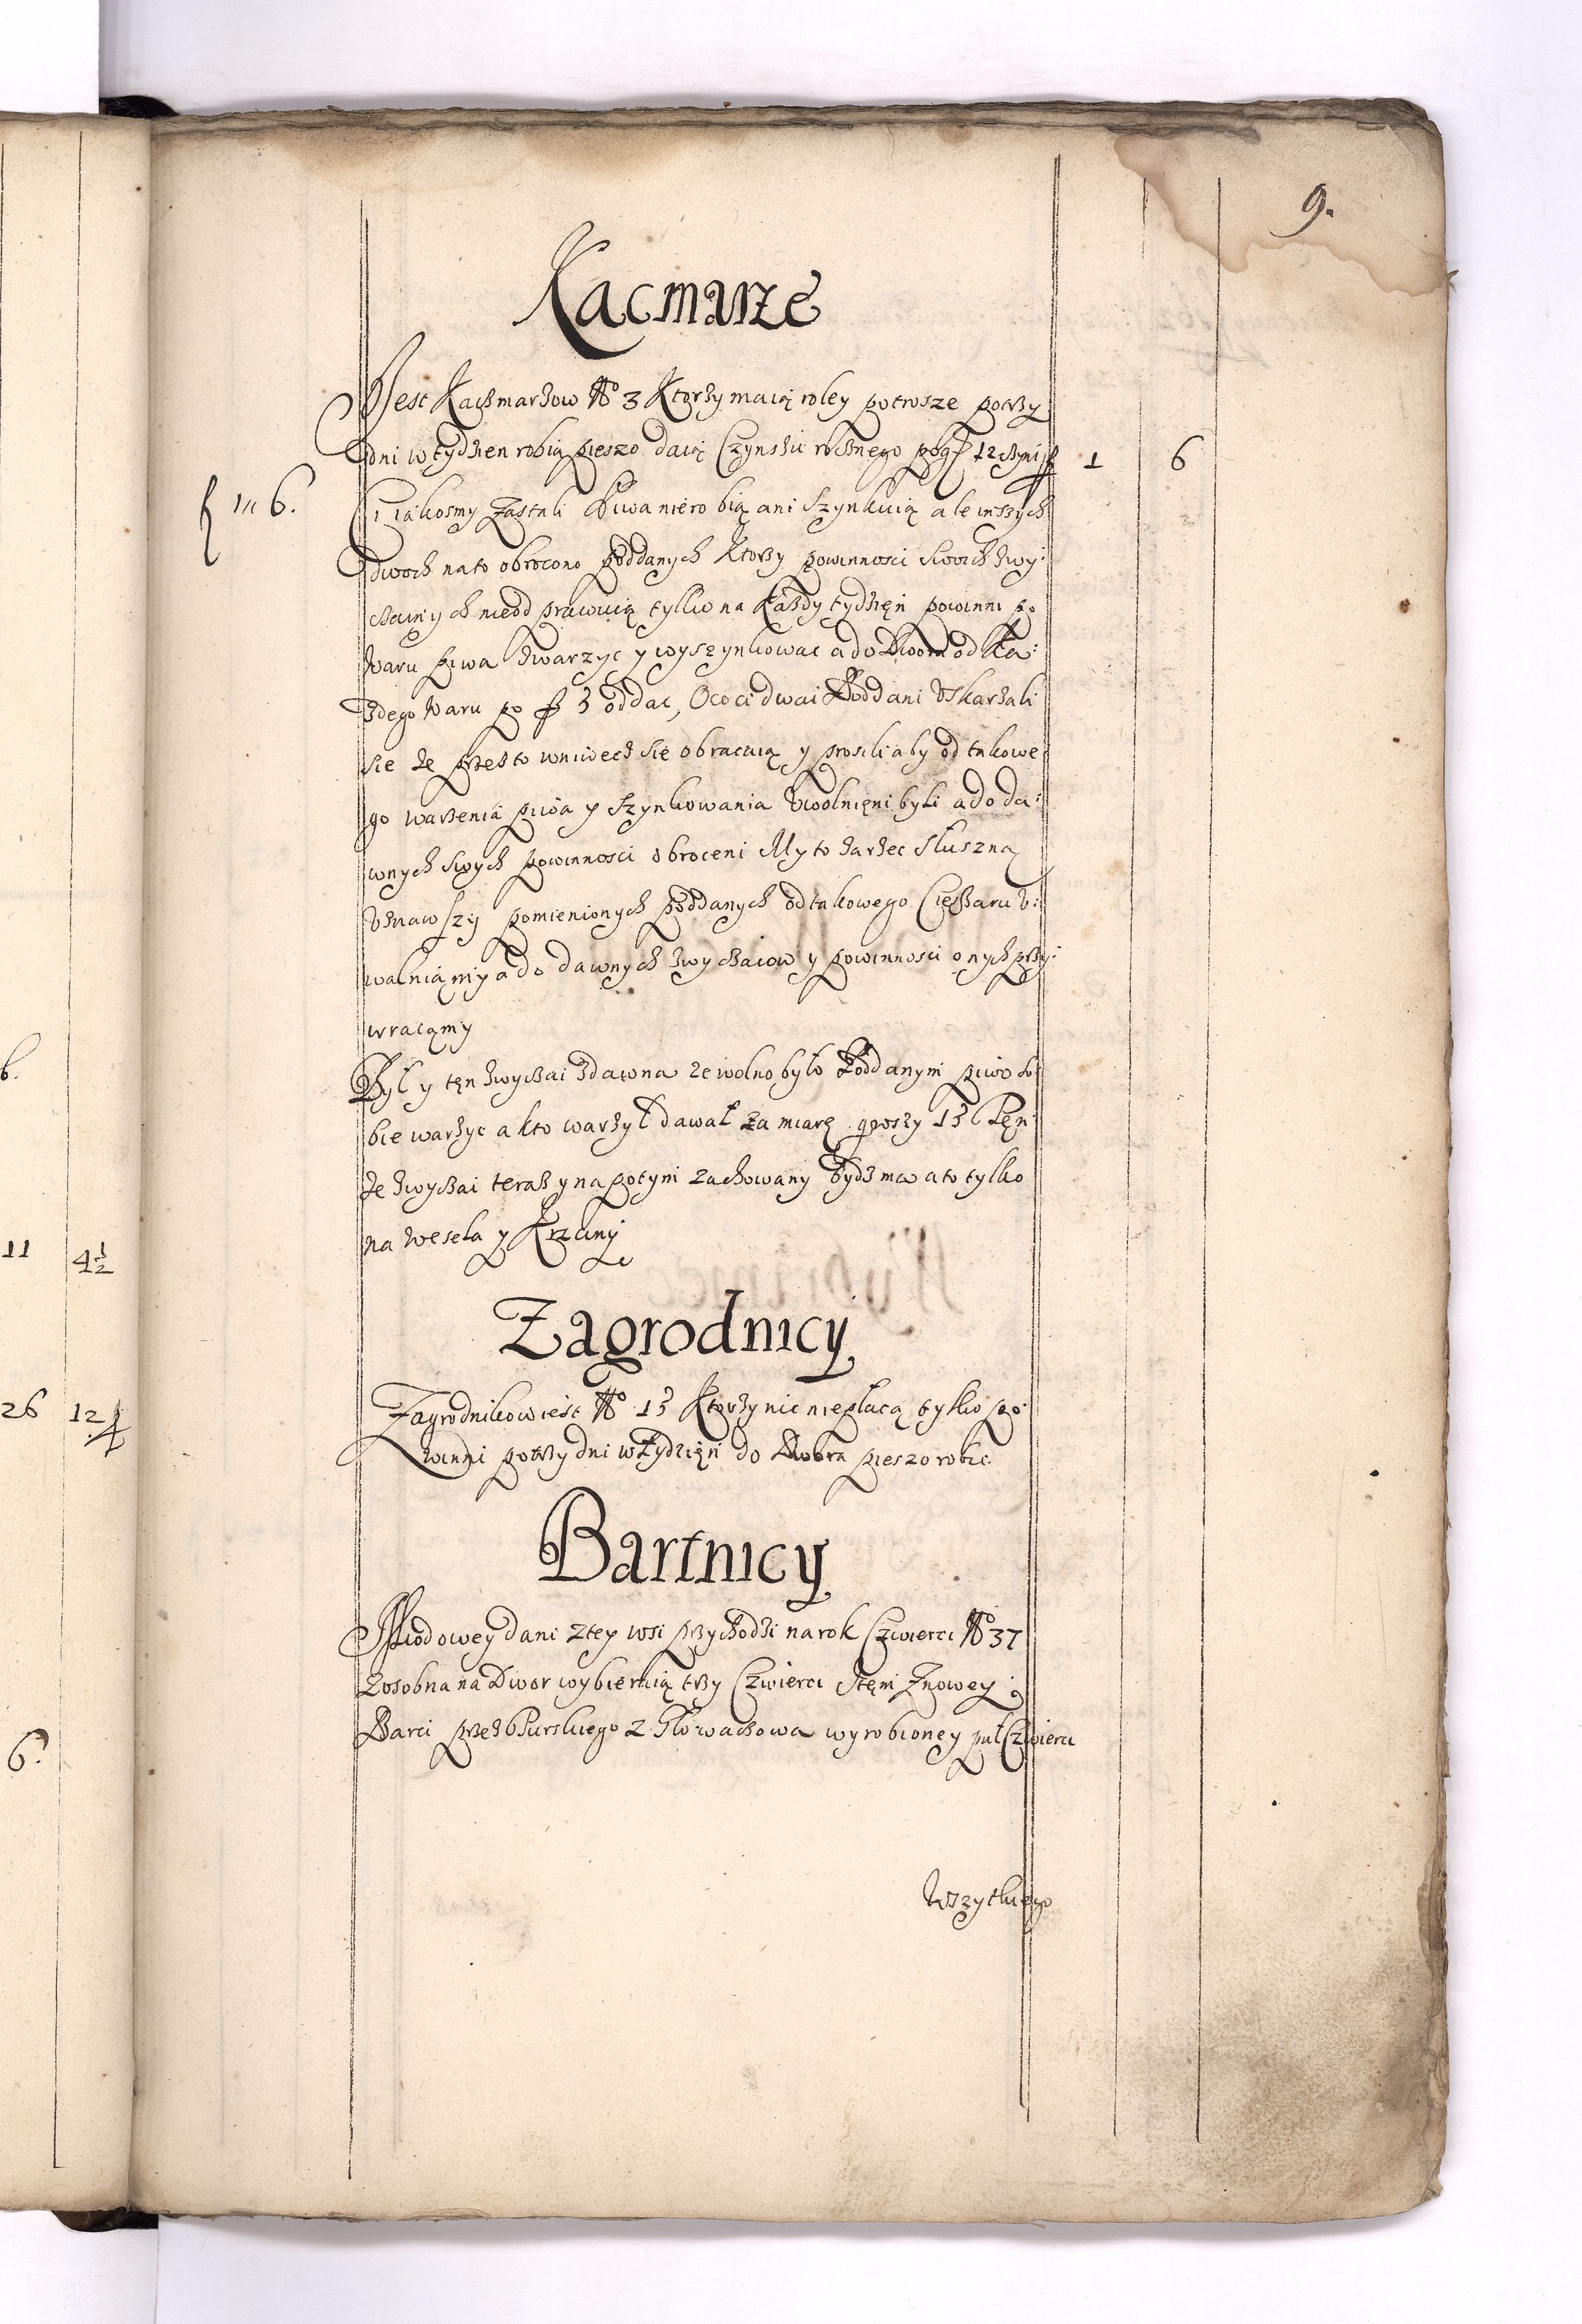 9.
Kacmarze
Jest Kaczmarzow No 3 Ktorzy maią roley potrosze po trzy
dni w tydzien robią pieszo daią Czynszu rocznego po gr 12 czyni f 1 6
f 1 " 6.
Ci iakosmy Zastali Piwa nie robią ani Szynkuią ale inszych
dwoch na to obrocono Poddanych Ktorzy powinnosci swoich zwy:
czainych nie odprawuią tylko na Kazdy tydzięn powinni po
Waru Piwa Zwarzyc y wyszynkowac a do Dwora od Ka:
zdego Waru po f 3 oddac, O co ci dwai Poddani Uskarzali
sie ze przez to wniwecz sie obracaią y prosili aby od takowe:
go warzenia piwa y szynkowania Uwolnięni byli a do da:
wnych swych powinnosci obroceni My to Zarzec Sluszną
Uznawszy pomienionych poddanych od takowego Ciężaru U:
walniamy a do dawnych zwyczaiow y powinnosci onych przy:
wracąmy
Był y tęn zwyczai zdawna ze wolno było Poddanym piwo so:
bie warzyc a kto warzył dawał za miarę groszy 15 Tęn:
ze zwyczai teraz y na potym zachowany bydz ma a to tylko
na Wesela y Krzciny
Zagrodnicy
Zagrodnikow iest No 15 Ktorzy nic nie płacą tylko po:
winni po trzy dni w Tydzięn do Dwora pieszo robic.
Bartnicy
Miodowey dani z tey wsi przychodzi na rok Czwierci No 37
Zosobna na Dwor wybieraią trzy Czwierci Item Z nowey
Barci przez Burskiego z Głowaczowa wyrobioney puł Czwierci
Wszytkiego
6.
11 4½
26 12
6.